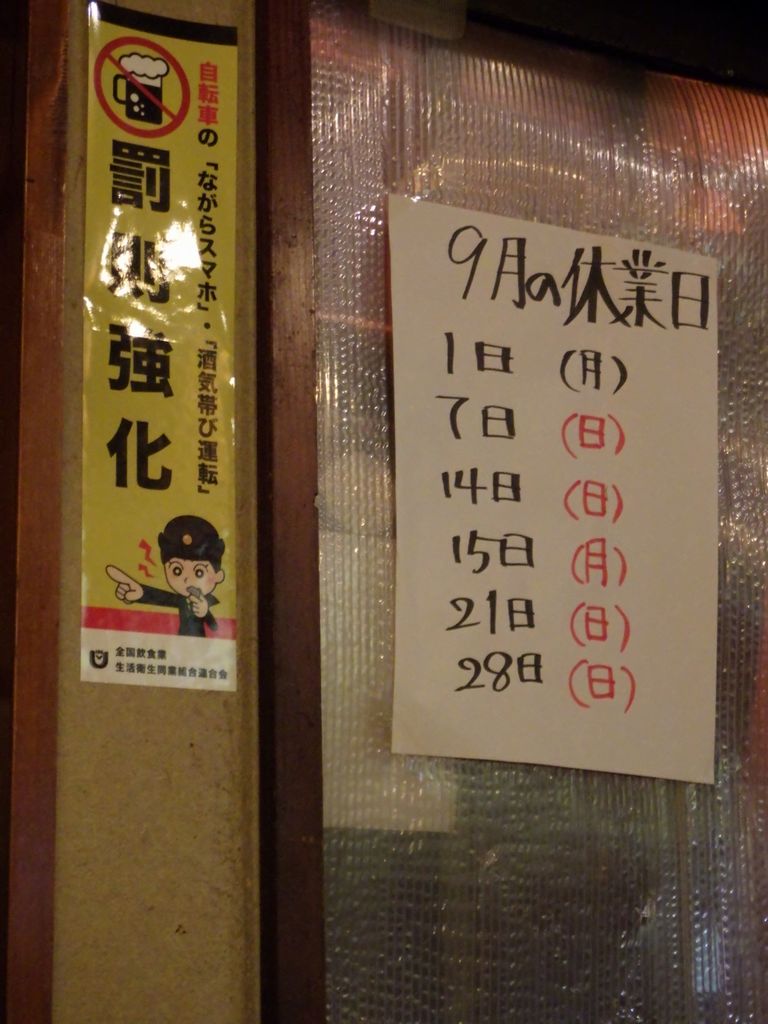 自転車の「ながらスマホ」・「酒気帯び運転」
罰則強化
全国飲食業
生活衛生同業組合連合会
9月の休業日
1日 (月)
7日 (日)
14日 (日)
15日 (月)
21日 (日)
28日 (日)